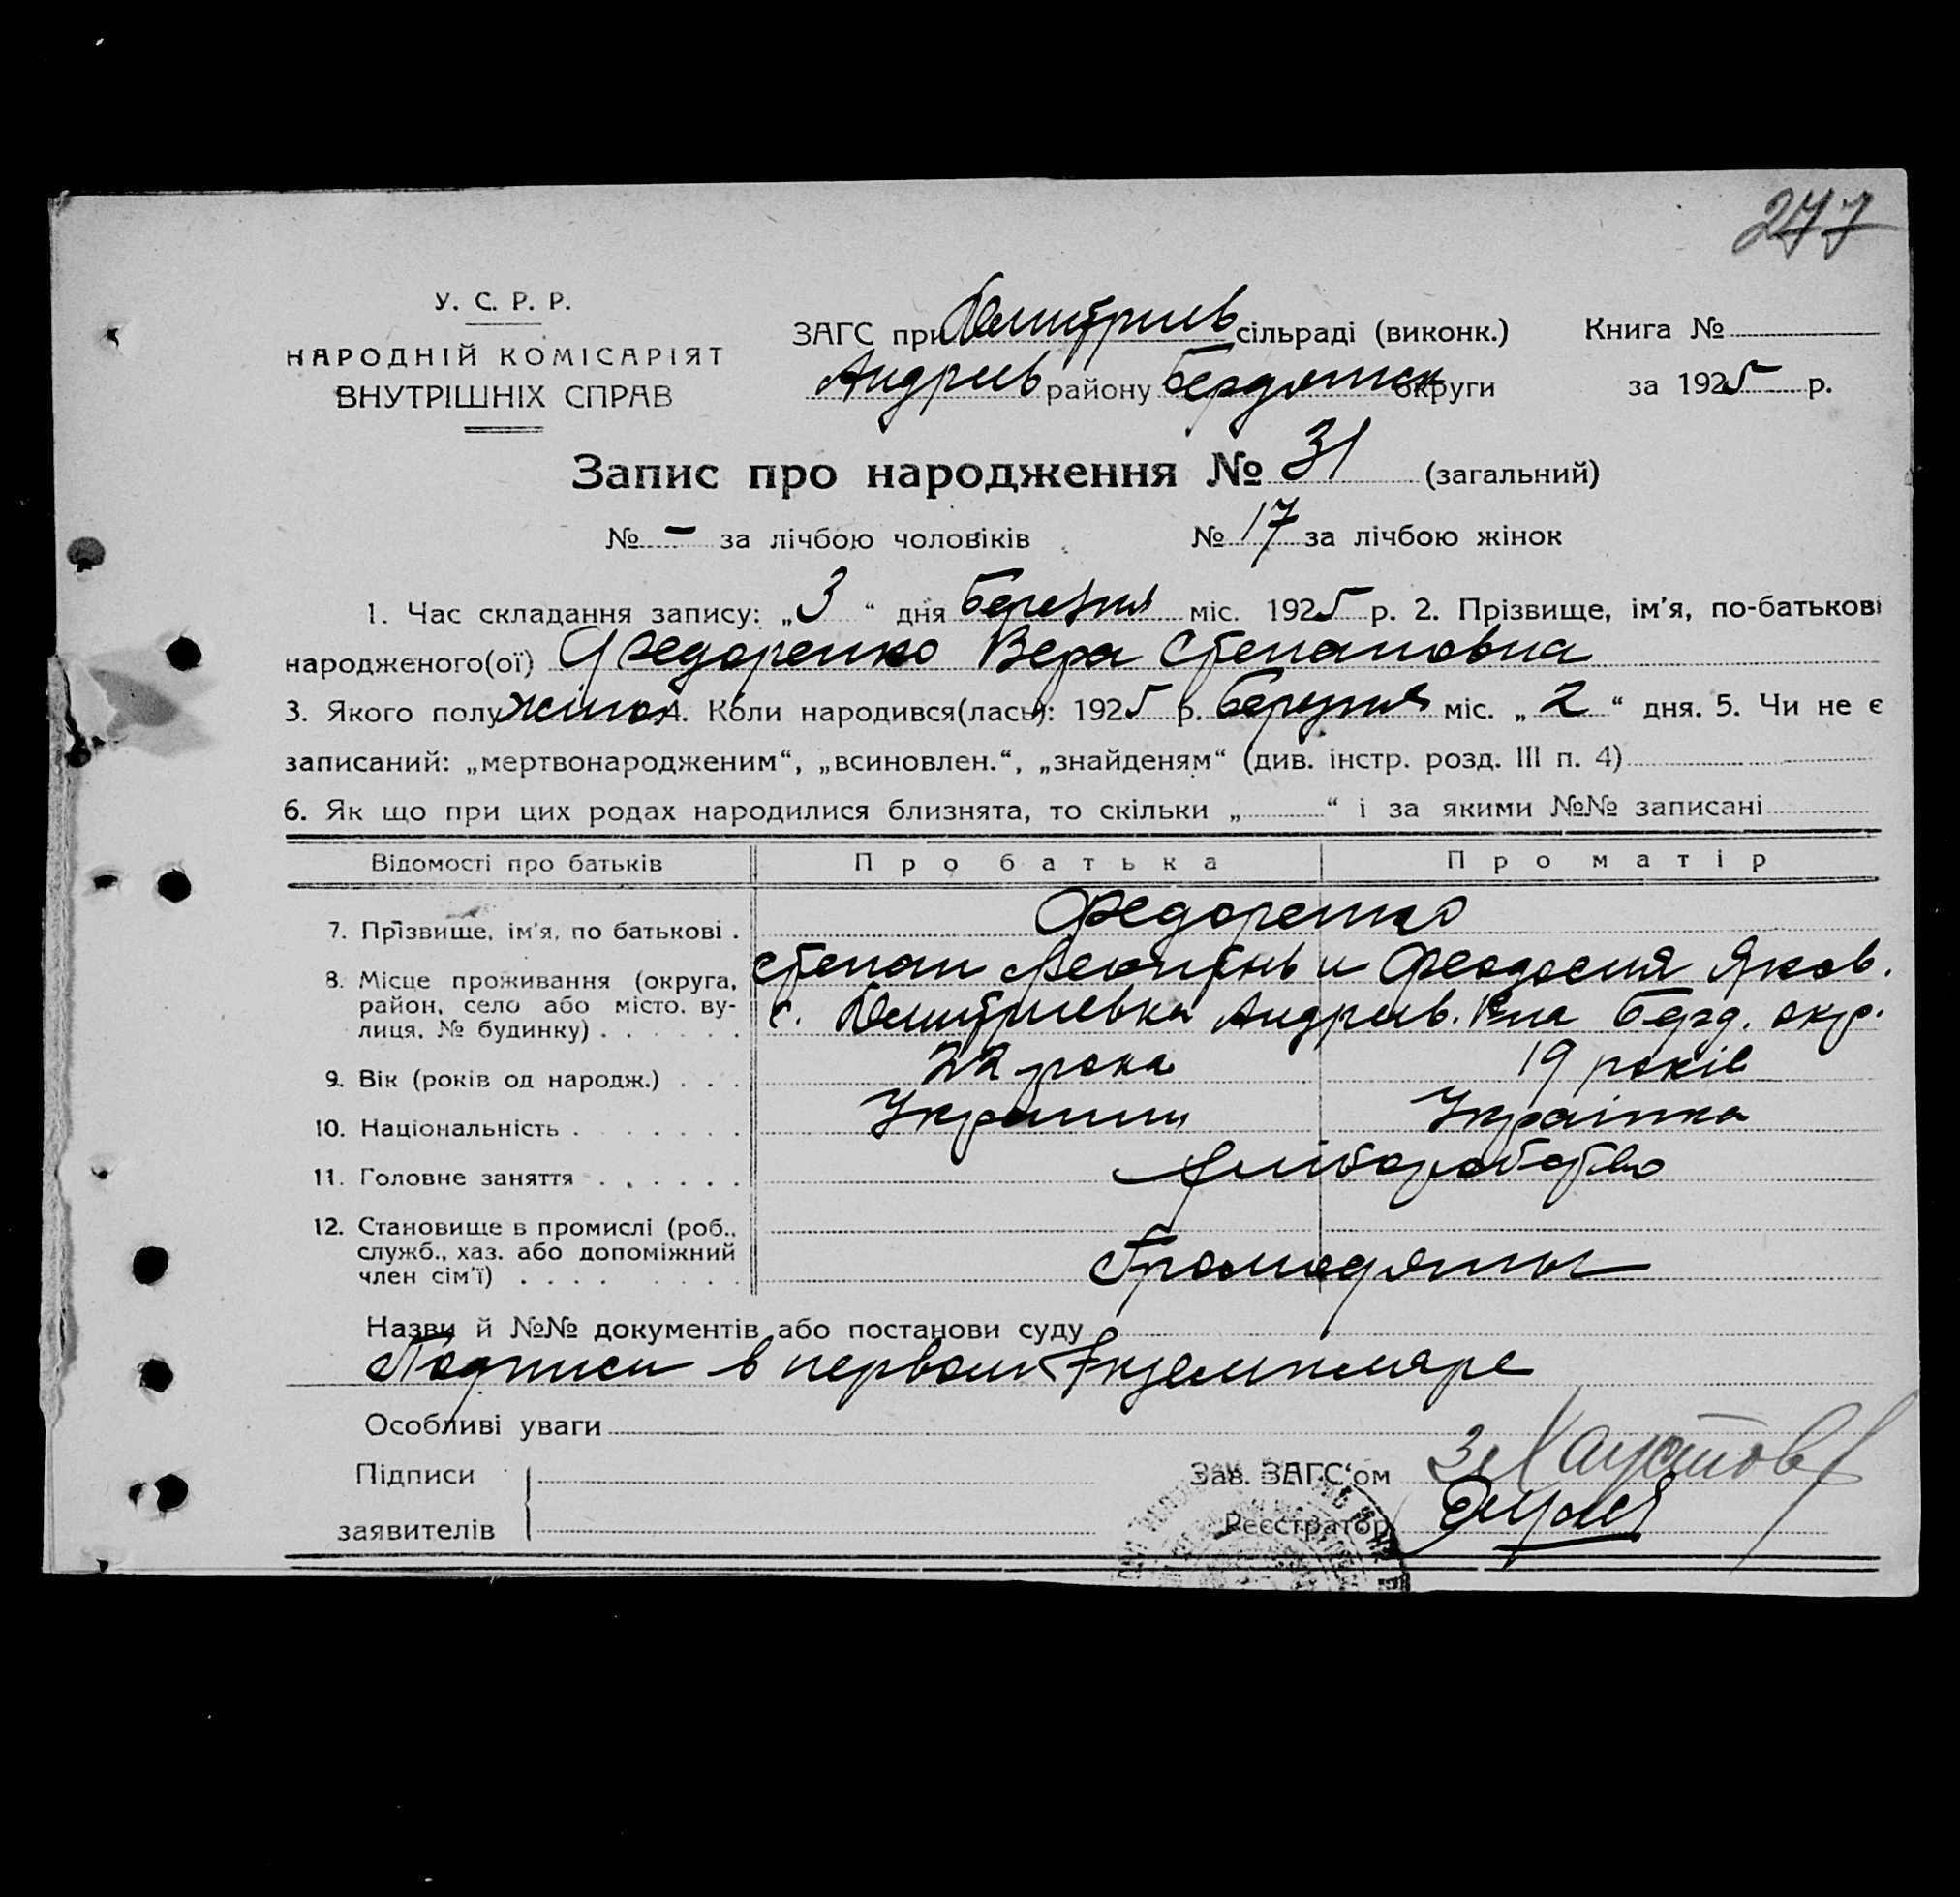 277
У. С. Р. Р.
НАРОДНІЙ КОМІСАРІЯТ
ВНУТРІШНІХ СПРАВ
ЗАГС при Дмитриев сільраді (виконк.) Книга №
Андреев району Бердянск округи за 1925 р.
Запис про народження № 31 (загальний)
№ – за лічбою чоловіків № 17 за лічбою жінок
1. Час складання запису: „3“ дня березня міс. 1925 р. 2. Прізвище, ім'я, по-батькові
народженого(ої) Федоренко Вера Степановна
3. Якого полу жіноч. 4. Коли народився(лась): 1925 р. березня міс. „2“ дня. 5. Чи не є
записаний: „мертвонародженим“, „всиновлен.“, „знайденям“ (див. інстр. розд. III п. 4)
6. Як що при цих родах народилися близнята, то скільки „ “ і за якими №№ записані
Відомості про батьків Про батька Про матір
7. Прізвище, ім'я, по батькові . Федоренко
8. Місце проживання (округа, Степан и Феодосия Яков.
район, село або місто, ву- с. Дмитриевка Андреев. Р-на Берд. окр.
лиця, № будинку)
9. Вік (років од народж.) 22 рока 19 років
10. Національність Украинц Украінка
11. Головне заняття Хліборобство
12. Становище в промислі (роб.,
служб., хаз. або допоміжний Громадяны
член сім'ї)
Назви й №№ документів або постанови суду
Подписи в первом Екземпляре
Особливі уваги
Підписи Зав. ЗАГС'ом Хаустов
заявителів Реєстратор